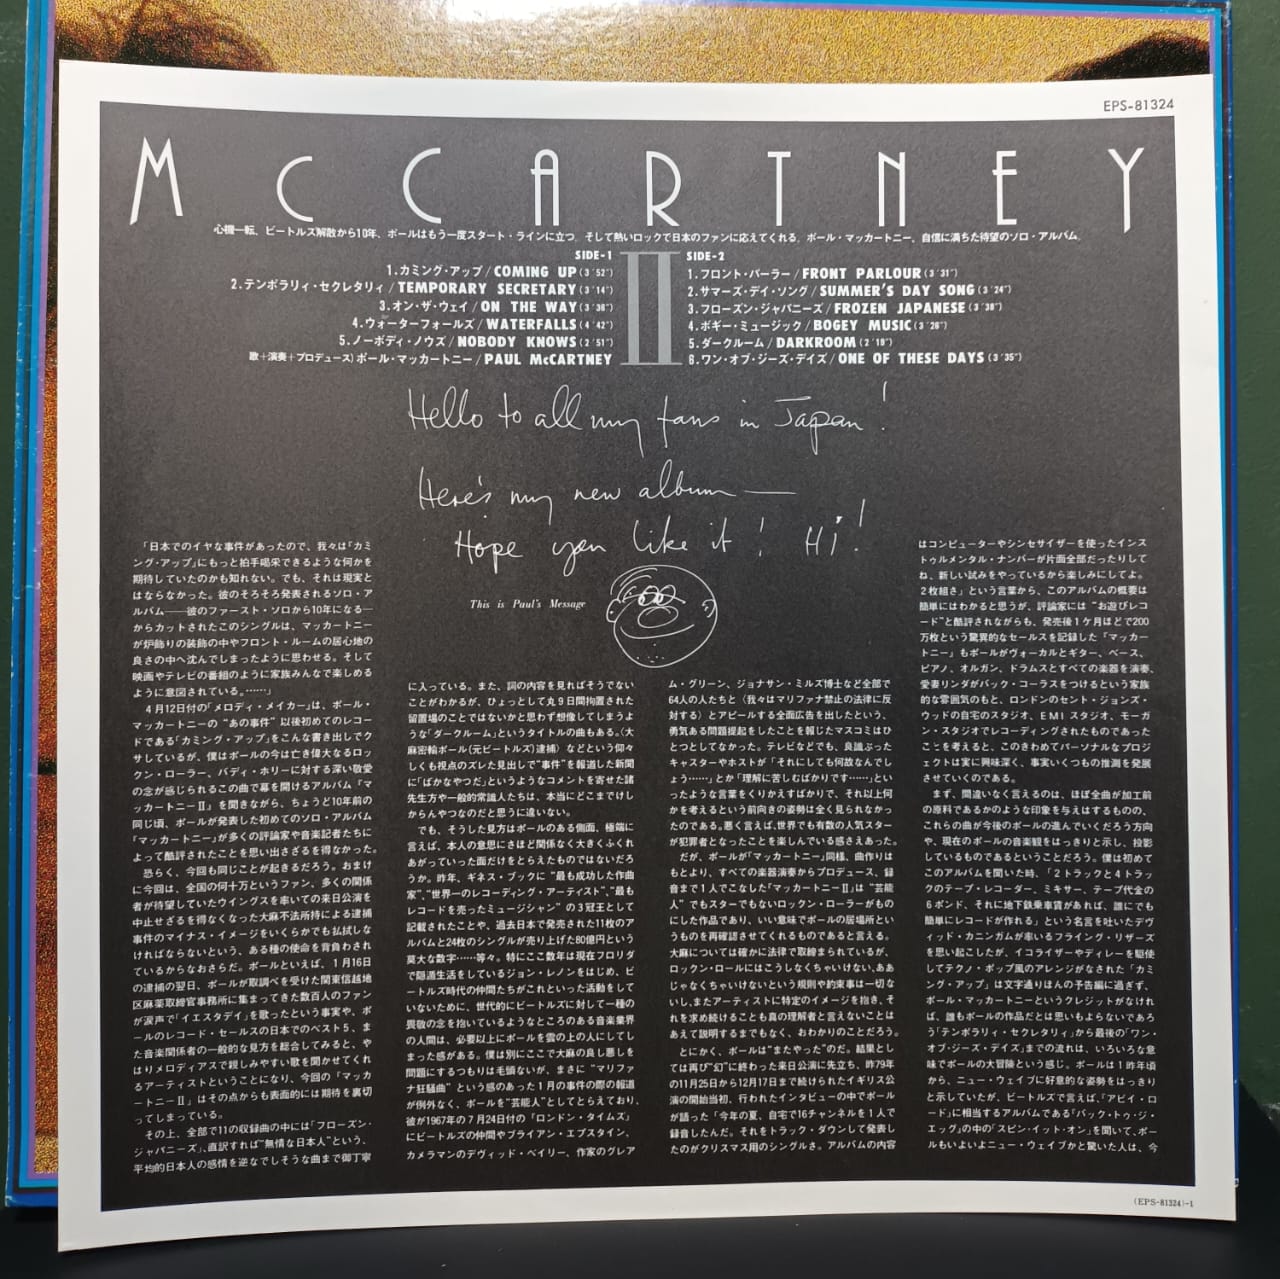 EPS-81324
McCARTNEY
心機一転、ビートルズ解散から10年、ポールはもう一度スタート・ラインに立つ。そして熱いロックで日本のファンに応えてくれる。ポール・マッカートニー、自信に満ちた待望のソロ・アルバム。
II
SIDE-1
1.カミング・アップ/COMING UP(3´52˝)
2.テンポラリィ・セクレタリィ/TEMPORARY SECRETARY(3´14˝)
3.オン・ザ・ウェイ/ON THE WAY(3´36˝)
4.ウォーターフォールズ/WATERFALLS(4´42˝)
5.ノーボディ・ノウズ/NOBODY KNOWS(2´51˝)
歌+演奏+プロデュース)ポール・マッカートニー/PAUL McCARTNEY
SIDE-2
1.フロント・パーラー/FRONT PARLOUR(3´31˝)
2.サマーズ・デイ・ソング/SUMMER'S DAY SONG(3´24˝)
3.フローズン・ジャパニーズ/FROZEN JAPANESE(3´38˝)
4.ボギー・ミュージック/BOGEY MUSIC(3´28˝)
5.ダークルーム/DARKROOM(2´19˝)
6.ワン・オブ・ジーズ・デイズ/ONE OF THESE DAYS(3´35˝)
Hello to all my fans in Japan!
Here's my new album —
Hope you like it! Hi!
This is Paul's Message
「日本でのイヤな事件があったので、我々は「カミ
ング・アップ」にもっと拍手喝采できるような何かを
期待していたのかも知れない。でも、それは現実と
はならなかった。彼のそろそろ発表されるソロ・ア
ルバム——彼のファースト・ソロから10年になる—
からカットされたこのシングルは、マッカートニー
が炉飾りの装飾の中やフロント・ルームの居心地の
良さの中へ沈んでしまったように思わせる。そして
映画やテレビの番組のように家族みんなで楽しめる
ように意図されている。……」
4月12日付の「メロディ・メイカー」は、ポール・
マッカートニーの“あの事件”以後初めてのレコー
ドである「カミング・アップ」をこんな書き出しでク
サしているが、僕はポールの今は亡き偉大なるロッ
クン・ローラー、バディ・ホリーに対する深い敬愛
の念が感じられるこの曲で幕を開けるアルバム『マ
ッカートニーII』を聞きながら、ちょうど10年前の
同じ頃、ポールが発表した初めてのソロ・アルバム
『マッカートニー』が多くの評論家や音楽記者たちに
よって酷評されたことを思い出さざるを得なかった。
恐らく、今回も同じことが起きるだろう。おまけ
に今回は、全国の何十万というファン、多くの関係
者が待望していたウイングスを率いての来日公演を
中止せざるを得なくなった大麻不法所持による逮捕
事件のマイナス・イメージをいくらかでも払拭しな
ければならないという、ある種の使命を背負わされ
ているからなおさらだ。ポールといえば、1月16日
の逮捕の翌日、ポールが取調べを受けた関東信越地
区麻薬取締官事務所に集まってきた数百人のファン
が涙声で「イエスタデイ」を歌ったという事実や、ポ
ールのレコード・セールスの日本でのベスト5、ま
た音楽関係者の一般的な見方を総合してみると、や
はりメロディアスで親しみやすい歌を聞かせてくれ
るアーティストということになり、今回の『マッカ
ートニーII』はその点からも表面的には期待を裏切
ってしまっている。
その上、全部で11の収録曲の中には「フローズン・
ジャパニーズ」、直訳すれば“無情な日本人”という、
平均的日本人の感情を逆なでしそうな曲まで御丁寧
に入っている。また、詞の内容を見ればそうでない
ことがわかるが、ひょっとして丸9日間拘置された
留置場のことではないかと思わず想像してしまうよ
うな「ダークルーム」というタイトルの曲もある。〈大
麻密輸ポール(元ビートルズ)逮捕〉などという仰々
しくも視点のズレた見出しで“事件”を報道した新聞
に「ばかなやつだ」というようなコメントを寄せた諸
先生方や一般的常識人たちは、本当にどこまでけし
からんやつなのだと思うに違いない。
でも、そうした見方はポールのある側面、極端に
言えば、本人の意思にさほど関係なく大きくふくれ
あがっていった面だけをとらえたものではないだろ
うか。昨年、ギネス・ブックに“最も成功した作曲
家”、“世界一のレコーディング・アーティスト”、“最も
レコードを売ったミュージシャン”の3冠王として
記載されたことや、過去日本で発売された11枚のア
ルバムと24枚のシングルが売り上げた80億円という
莫大な数字……等々。特にここ数年は現在フロリダ
で隠遁生活をしているジョン・レノンをはじめ、ビ
ートルズ時代の仲間たちがこれといった活動をして
いないために、世代的にビートルズに対して一種の
畏敬の念を抱いているようなところのある音楽業界
の人間は、必要以上にポールを雲の上の人にしてし
まった感がある。僕は別にここで大麻の良し悪しを
問題にするつもりは毛頭ないが、まさに“マリファ
ナ狂騒曲”という感のあった1月の事件の際の報道
が例外なく、ポールを“芸能人”としてとらえており、
彼が1967年の7月24日付の「ロンドン・タイムズ」
にビートルズの仲間やブライアン・エプスタイン、
カメラマンのデヴィッド・ベイリー、作家のグレア
ム・グリーン、ジョナサン・ミルズ博士など全部で
64人の人たちと〈我々はマリファナ禁止の法律に反
対する〉とアピールする全面広告を出したという、
勇気ある問題提起をしたことを報じたマスコミはひ
とつとしてなかった。テレビなどでも、良識ぶった
キャスターやホストが「それにしても何故なんでし
ょう……」とか「理解に苦しむばかりです……」とい
ったような言葉をくりかえすばかりで、それ以上何
かを考えるという前向きの姿勢は全く見られなかっ
たのである。悪く言えば、世界でも有数の人気スター
が犯罪者となったことを楽しんでいる感さえあった。
だが、ポールが『マッカートニー』同様、曲作りは
もとより、すべての楽器演奏からプロデュース、録
音まで1人でこなした『マッカートニーII』は“芸能
人”でもスターでもないロックン・ローラーがもの
にした作品であり、いい意味でポールの居場所とい
うものを再確認させてくれるものであると言える。
大麻については確かに法律で取締まられているが、
ロックン・ロールにはこうしなくちゃいけない、ああ
じゃなくちゃいけないという規則や約束事は一切な
いし、またアーティストに特定のイメージを抱き、そ
れを求め続けることも真の理解者と言えないことは
あえて説明するまでもなく、おわかりのことだろう。
とにかく、ポールは“またやった”のだ。結果とし
ては再び“幻”に終わった来日公演に先立ち、昨79年
の11月25日から12月17日まで続けられたイギリス公
演の開始当初、行われたインタビューの中でポール
が語った「今年の夏、自宅で16チャンネルを1人で
録音したんだ。それをトラック・ダウンして発表し
たのがクリスマス用のシングルさ。アルバムの内容
はコンピューターやシンセサイザーを使ったインス
トゥルメンタル・ナンバーが片面全部だったりして
ね、新しい試みをやっているから楽しみにしてよ。
2枚組さ」という言葉から、このアルバムの概要は
簡単にはわかると思うが、評論家には“お遊びレコ
ード”と酷評されながらも、発売後1ケ月ほどで200
万枚という驚異的なセールスを記録した『マッカー
トニー』もポールがヴォーカルとギター、ベース、
ピアノ、オルガン、ドラムスとすべての楽器を演奏、
愛妻リンダがバック・コーラスをつけるという家族
的な雰囲気のもと、ロンドンのセント・ジョンズ・
ウッドの自宅のスタジオ、EMIスタジオ、モーガ
ン・スタジオでレコーディングされたものであった
ことを考えると、このきわめてパーソナルなプロジ
ェクトは実に興味深く、事実いくつもの推測を発展
させていくのである。
まず、間違いなく言えるのは、ほぼ全曲が加工前
の原料であるかのような印象を与えはするものの、
これらの曲が今後のポールの進んでいくだろう方向
や、現在のポールの音楽観をはっきりと示し、投影
しているものであるということだろう。僕は初めて
このアルバムを聞いた時、「2トラックと4トラッ
クのテープ・レコーダー、ミキサー、テープ代金の
6ポンド、それに地下鉄乗車賃があれば、誰にでも
簡単にレコードが作れる」という名言を吐いたデヴ
ィッド・カニンガムが率いるフライング・リザーズ
を思い起こしたが、イコライザーやディレーを駆使
してテクノ・ポップ風のアレンジがなされた「カミ
ング・アップ」は文字通りほんの予告編に過ぎず、
ポール・マッカートニーというクレジットがなけれ
ば、誰もポールの作品だとは思いもよらないであろ
う「テンポラリィ・セクレタリィ」から最後の「ワン・
オブ・ジーズ・デイズ」までの流れは、いろいろな意
味でポールの大冒険という感じ。ポールは1昨年頃
から、ニュー・ウェイブに好意的な姿勢をはっきり
と示していたが、ビートルズで言えば、『アビイ・ロ
ード』に相当するアルバムである『バック・トゥ・ジ・
エッグ』の中の「スピン・イット・オン」を聞いて、ポー
ルもいよいよニュー・ウェイブかと驚いた人は、今
(EPS-81324)-1